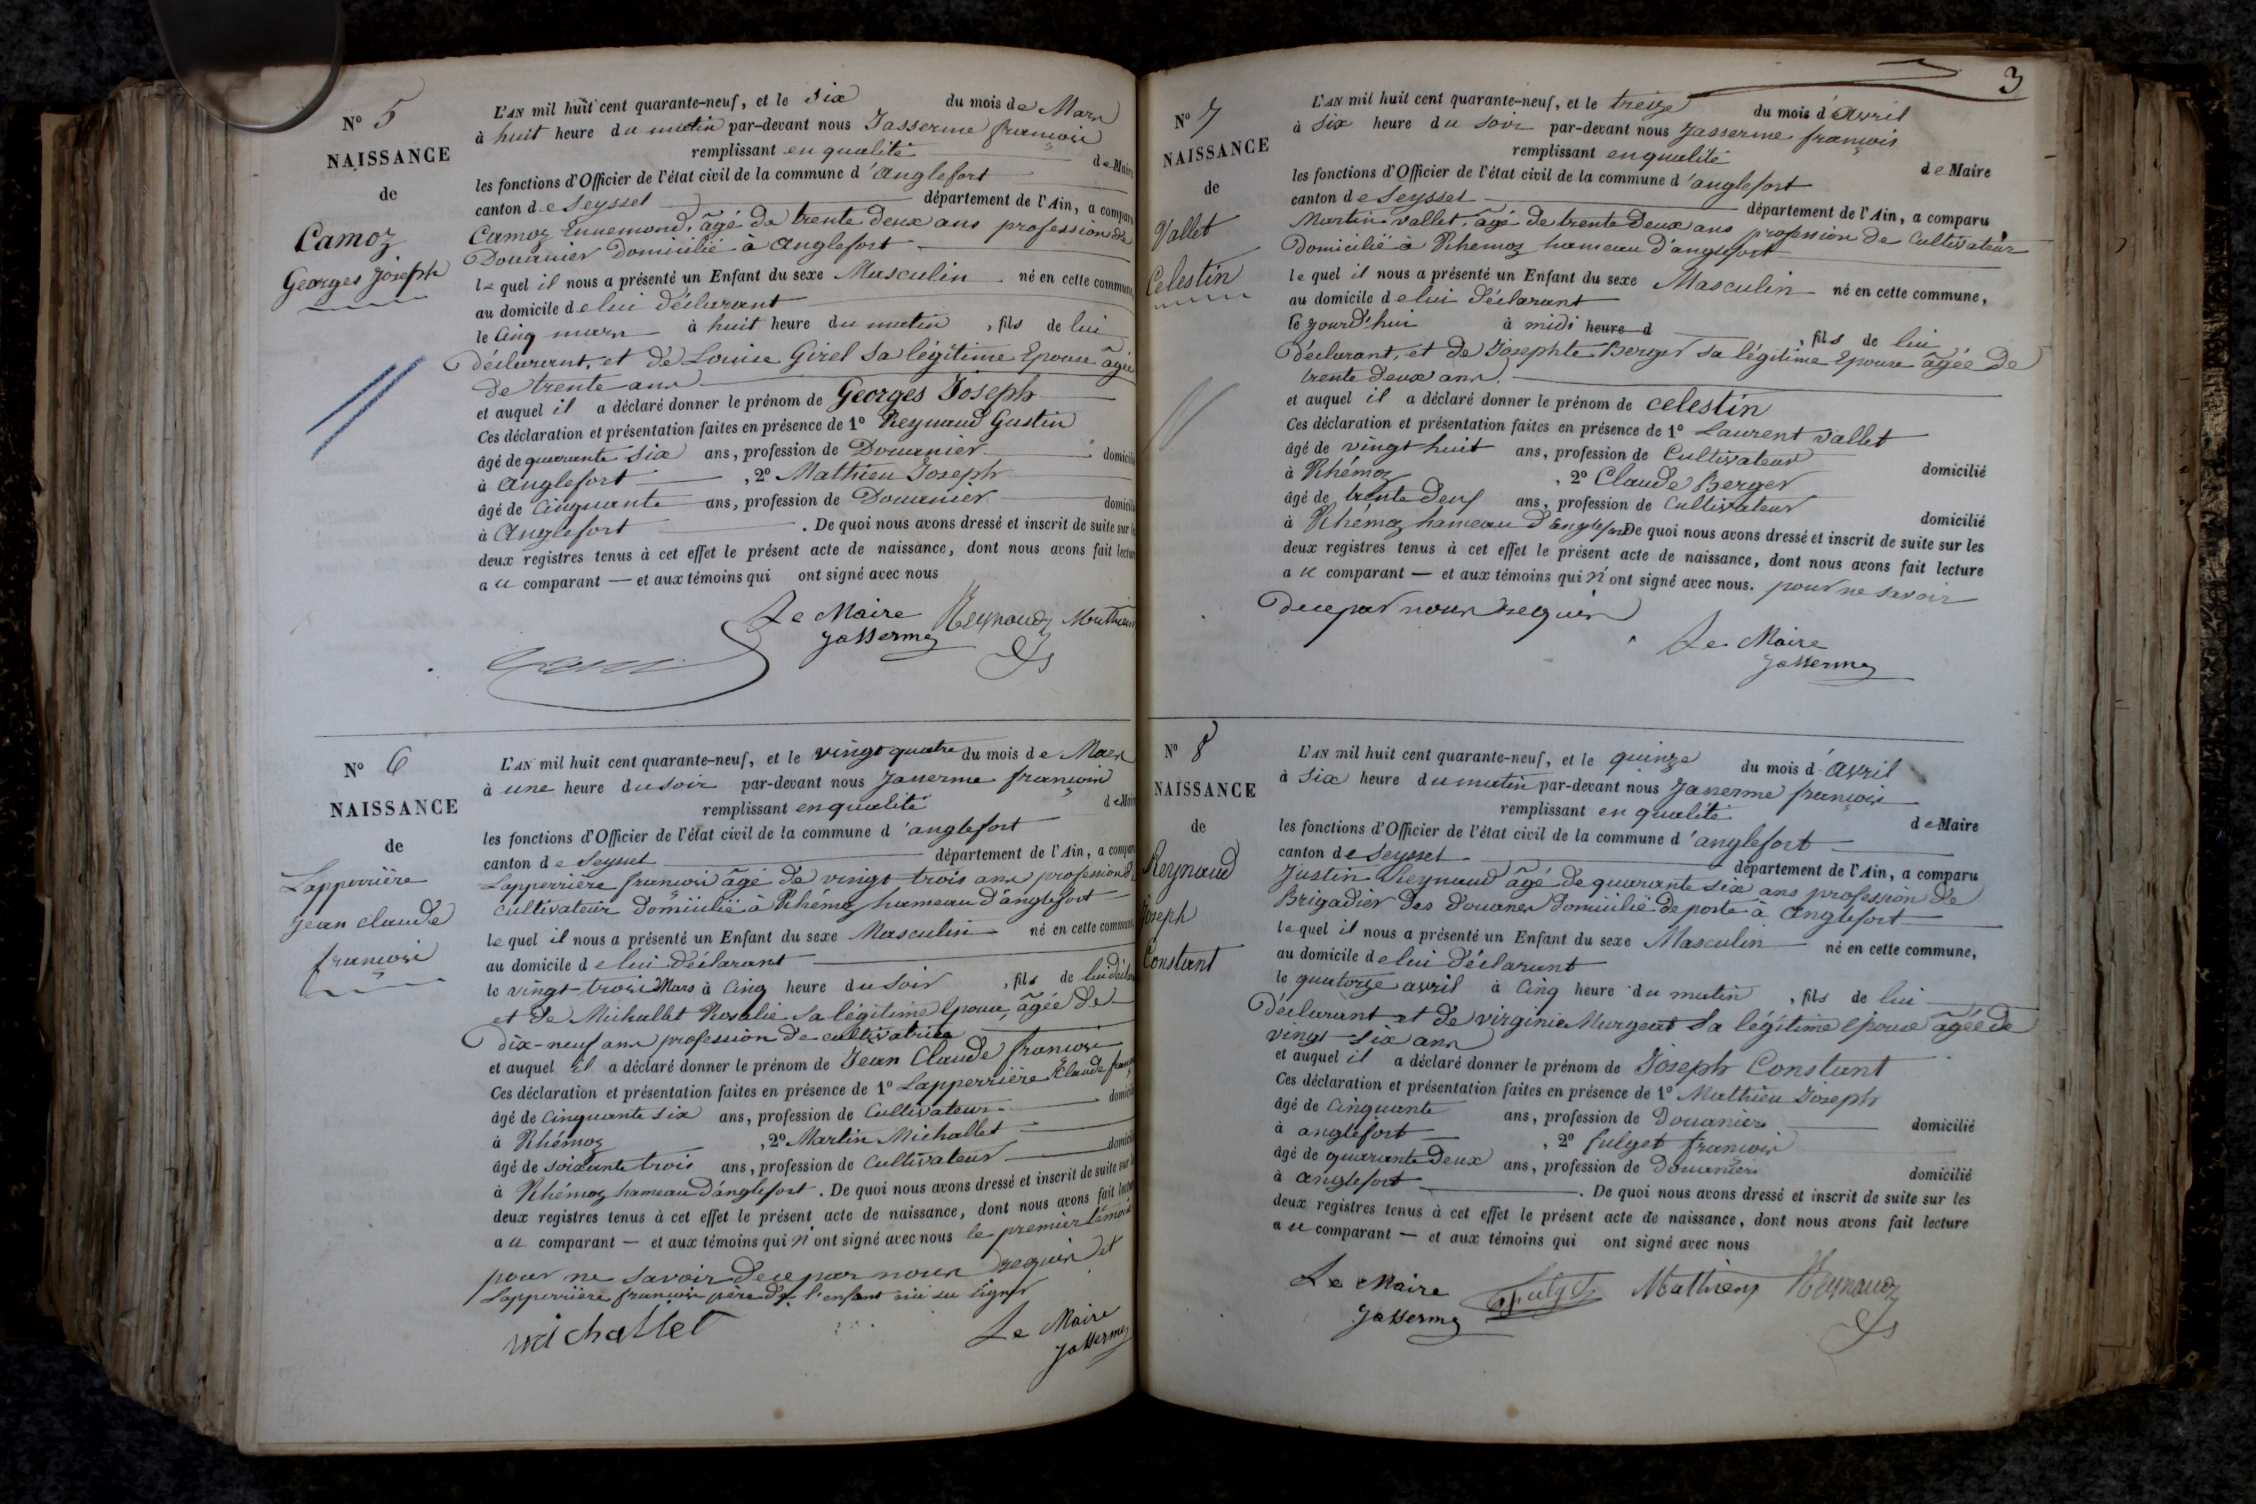 N° 5
NAISSANCE
de
Camoz
Georges Joseph
L'AN mil huit cent quarante-neuf, et le six du mois de Mars
à huit heure du matin par-devant nous Jasserme françois
remplissant en qualité de Maire
les fonctions d'Officier de l'état civil de la commune d'anglefort
canton de Seyssel département de l'Ain, a comparu
Camoz Ennemond, âgé de trente deux ans profession de
Douanier Domicilié à anglefort
lequel il nous a présenté un Enfant du sexe Masculin né en cette commune,
au domicile de lui déclarant
le cinq mars à huit heure du matin, fils de lui
déclarant, et de Louise Girel sa légitime Epouse âgée
de trente ans
et auquel il a déclaré donner le prénom de Georges Joseph
Ces déclaration et présentation faites en présence de 1° Reynaud Gustin
âgé de quarante six ans, profession de Douanier domicilié
à anglefort, 2° Mathieu Joseph
âgé de cinquante ans, profession de Douanier domicilié
à Anglefort. De quoi nous avons dressé et inscrit de suite sur les
deux registres tenus à cet effet le présent acte de naissance, dont nous avons fait lecture
au comparant — et aux témoins qui ont signé avec nous
Le Maire Reynaud Mathieu
Jasserme
N° 6
NAISSANCE
de
Lapperrière
Jean Claude
françois
L'AN mil huit cent quarante-neuf, et le vingt quatre du mois de Mars
à une heure du soir par-devant nous Jasserme françois
remplissant en qualité de Maire
les fonctions d'Officier de l'état civil de la commune d'anglefort
canton de Seyssel département de l'Ain, a comparu
Lapperrière françois âgé de vingt trois ans profession de
cultivateur Domicilié à Rhémoz hameau d'anglefort
lequel il nous a présenté un Enfant du sexe Masculin né en cette commune,
au domicile de lui déclarant
le vingt-trois Mars à cinq heure du soir, fils de lui déclarant
et de Michallet Rosalie sa légitime Epouse, âgée de
dix-neuf ans profession de cultivatrice
et auquel il a déclaré donner le prénom de Jean Claude françois
Ces déclaration et présentation faites en présence de 1° Lapperrière Claude françois
âgé de cinquante six ans, profession de Cultivateur domicilié
à Rhémoz, 2° Martin Michallet
âgé de soixante trois ans, profession de Cultivateur domicilié
à Rhémoz hameau d'anglefort. De quoi nous avons dressé et inscrit de suite sur les
deux registres tenus à cet effet le présent acte de naissance, dont nous avons fait lecture
au comparant — et aux témoins qui n'ont signé avec nous le premier témoin
pour ne savoir de ce par nous requis et
Lapperrière françois père de l'enfant n'a su signer
michallet Le Maire
Jasserme
3
N° 7
NAISSANCE
de
Vallet
Celestin
L'AN mil huit cent quarante-neuf, et le treize du mois d'avril
à six heure du soir par-devant nous Jasserme françois
remplissant en qualité de Maire
les fonctions d'Officier de l'état civil de la commune d'anglefort
canton de Seyssel département de l'Ain, a comparu
Martin Vallet, âgé de trente Deux ans profession de Cultivateur
Domicilié à Rhemoz hameau d'anglefort
lequel il nous a présenté un Enfant du sexe Masculin né en cette commune,
au domicile de lui déclarant
le jourd'hui à midi heure d, fils de lui
déclarant, et de Josephte Berger sa légitime Epouse âgée de
trente deux ans.
et auquel il a déclaré donner le prénom de celestin
Ces déclaration et présentation faites en présence de 1° Laurent Vallet
âgé de vingt huit ans, profession de Cultivateur domicilié
à Rhémoz, 2° Claude Berger
âgé de trente Deux ans, profession de Cultivateur domicilié
à Rhémoz hameau d'anglefort De quoi nous avons dressé et inscrit de suite sur les
deux registres tenus à cet effet le présent acte de naissance, dont nous avons fait lecture
au comparant — et aux témoins qui n'ont signé avec nous. pour ne savoir
de ce par nous requis
Le Maire
Jasserme
N° 8
NAISSANCE
de
Reynaud
Joseph
Constant
L'AN mil huit cent quarante-neuf, et le quinze du mois d'avril
à six heure du matin par-devant nous Jasserme françois
remplissant en qualité de Maire
les fonctions d'Officier de l'état civil de la commune d'anglefort
canton de Seyssel département de l'Ain, a comparu
Justin Reynaud âgé de quarante six ans profession de
Brigadier des Douanes Domicilié de poste à anglefort
lequel il nous a présenté un Enfant du sexe Masculin né en cette commune,
au domicile de lui déclarant
le quatorze avril à cinq heure du matin, fils de lui
déclarant et de virginie Murgeat sa légitime Epouse âgée de
vingt six ans
et auquel il a déclaré donner le prénom de Joseph Constant
Ces déclaration et présentation faites en présence de 1° Mathieu Joseph
âgé de cinquante ans, profession de Douanier domicilié
à anglefort, 2° fulget françois
âgé de quarante Deux ans, profession de douanier domicilié
à anglefort. De quoi nous avons dressé et inscrit de suite sur les
deux registres tenus à cet effet le présent acte de naissance, dont nous avons fait lecture
au comparant — et aux témoins qui ont signé avec nous
Le Maire Fulget Mathieu Reynaud
Jasserme